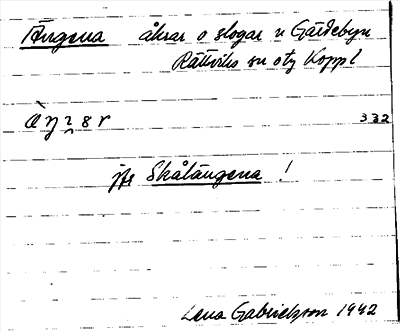 Ängena åkrar o slogar n Gärdebyn
Rättviks sn och Kopp l
332
jfr Skålängena !
Lena Gabrielsson 1942